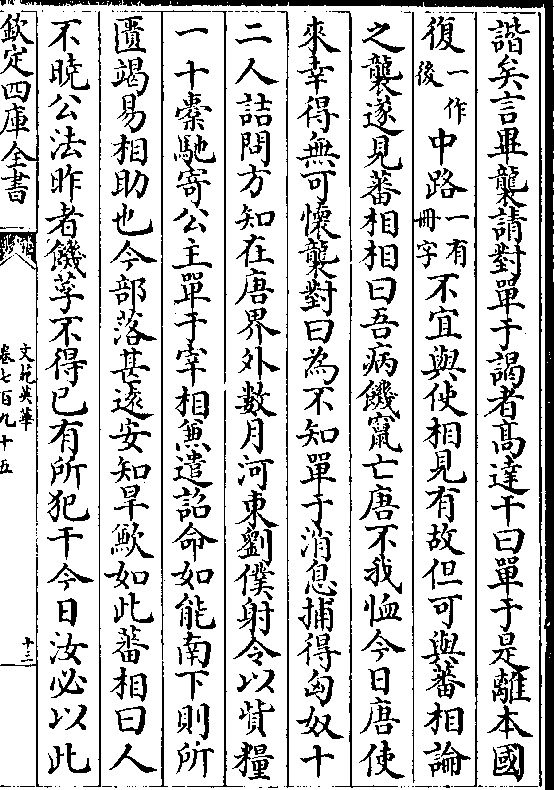 諧矣言畢襲請對單于謁者高達干曰單于是離本國
復一作後中路一有冊字不宜與使相見有故但可與蕃相論
之襲遂見蕃相相曰吾病饑竄亡唐不我恤今日唐使
來幸得無可懷襲對曰為不知單于消息捕得匈奴十
二人詰問方知在唐界外數月河東劉僕射令以貲糧
一十橐馳寄公主單于宰相兼遣詔命如能南下則所
匱竭易相助也今部落甚遠安知旱歉如此蕃相曰人
不曉公法昨者饑莩不得已有所犯干今日汝必以此
欽定四庫全書
文苑英華
卷七百九十五
十三